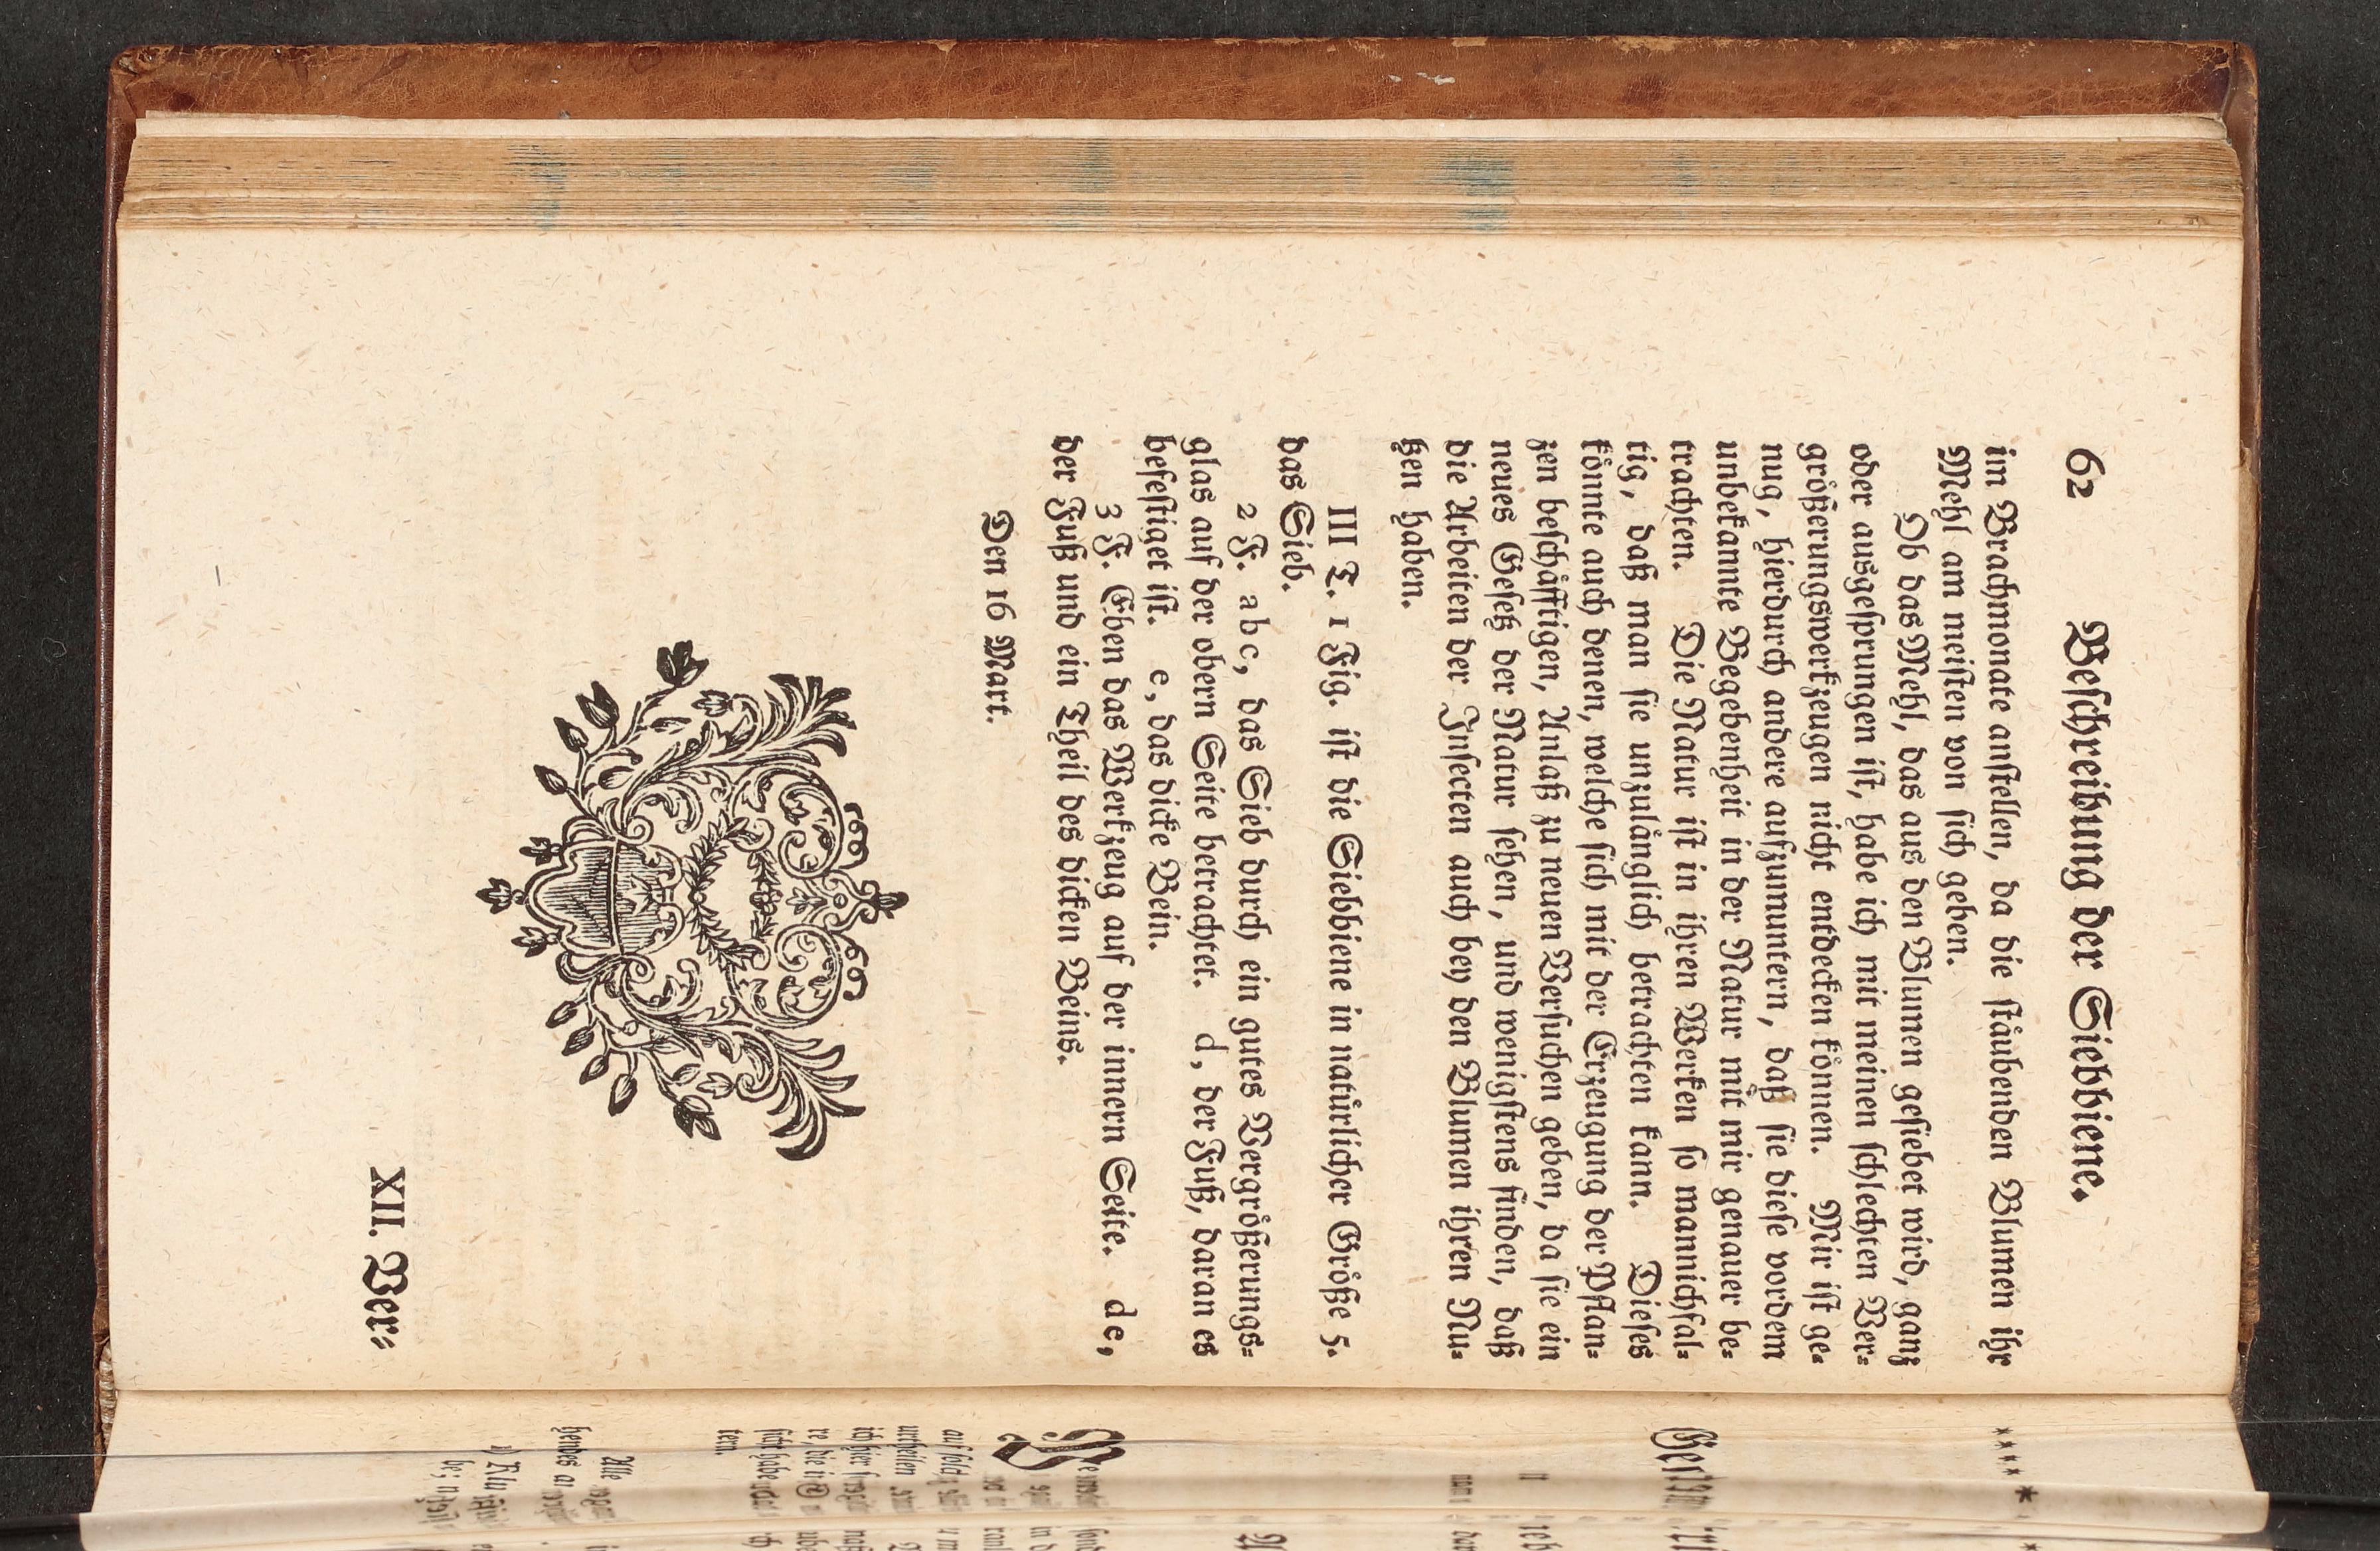 62 Beschreibung der Siebbiene.
im Brachmonate anstellen, da die ståubenden Blumen ihr
Mehl am meisten von sich geben.
Ob das Mehl, das aus den Blumen gesiebet wird, ganz
oder ausgesprungen ist, habe ich mit meinen schlechten Ver-
größerungswerkzeugen nicht entdecken können. Mir ist ge-
nug, hierdurch andere aufzumuntern, daß sie diese vordem
unbekannte Begebenheit in der Natur mit mir genauer be-
trachten. Die Natur ist in ihren Werken so mannichfal-
tig, daß man sie unzulänglich betrachten kann. Dieses
könnte auch denen, welche sich mit der Erzeugung der Pflan-
zen beschäfftigen, Anlaß zu neuen Versuchen geben, da sie ein
neues Gesetz der Natur sehen, und wenigstens finden, daß
die Arbeiten der Insecten auch bey den Blumen ihren Nu-
tzen haben.
III T. 1 Fig. ist die Siebbiene in natürlicher Größe 5.
das Sieb.
2 F. a b c, das Sieb durch ein gutes Vergrößerungs-
glas auf der obern Seite betrachtet. d, der Fuß, daran es
befestiget ist. e, das dicke Bein.
3 F. Eben das Werkzeug auf der innern Seite. d e,
der Fuß und ein Theil des dicken Beins.
Den 16 Mart.
XII. Ver-